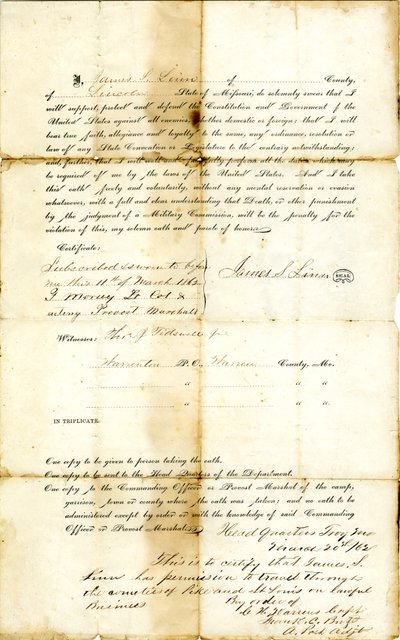 I, James S. Linn of County,
of Lincoln State of Missouri, do solemnly swear that I
will support, protect and defend the Constitution and Government of the
United States against all enemies, whether domestic or foreign; that I will
bear true faith, allegiance and loyalty to the same, any ordinance, resolution or
law of any State Convocation or Legislature to the contrary notwithstanding;
and, further, that I will well and faithfully perform all the duties which may
be required of me by the laws of the United States. And I take
this oath freely and voluntarily, without any mental reservation or evasion
whatsoever, with a full and clear understanding that Death, or other punishment
by the judgment of a Military Commission, will be the penalty for the
violation of this, my solemn oath and parole of honor.
Certificate:
Subscribed & sworn to before
me this 11th of March 1862
Lt Col &
Provost Marshall
James S. Linn SEAL
Witnesses:
Warrenton P. O. Warren County, Mo.
" " "
" " "
IN TRIPLICATE.
One copy to be given to person taking the oath.
One copy to be sent to the Head Quarters of the Department.
One copy to the Commanding Officer or Provost Marshal of the camp,
garrison, town or county where the oath was taken; and no oath to be
administered except by order or with the knowledge of said Commanding
Officer or Provost Marshal.
Head Quarters Troy Mo
20th /62
This is to certify that James S.
Linn has permission to travel through
the counties of Pike and St Louis on lawful
Business
By order of
Capt
Frank C.
A. Post Adjt